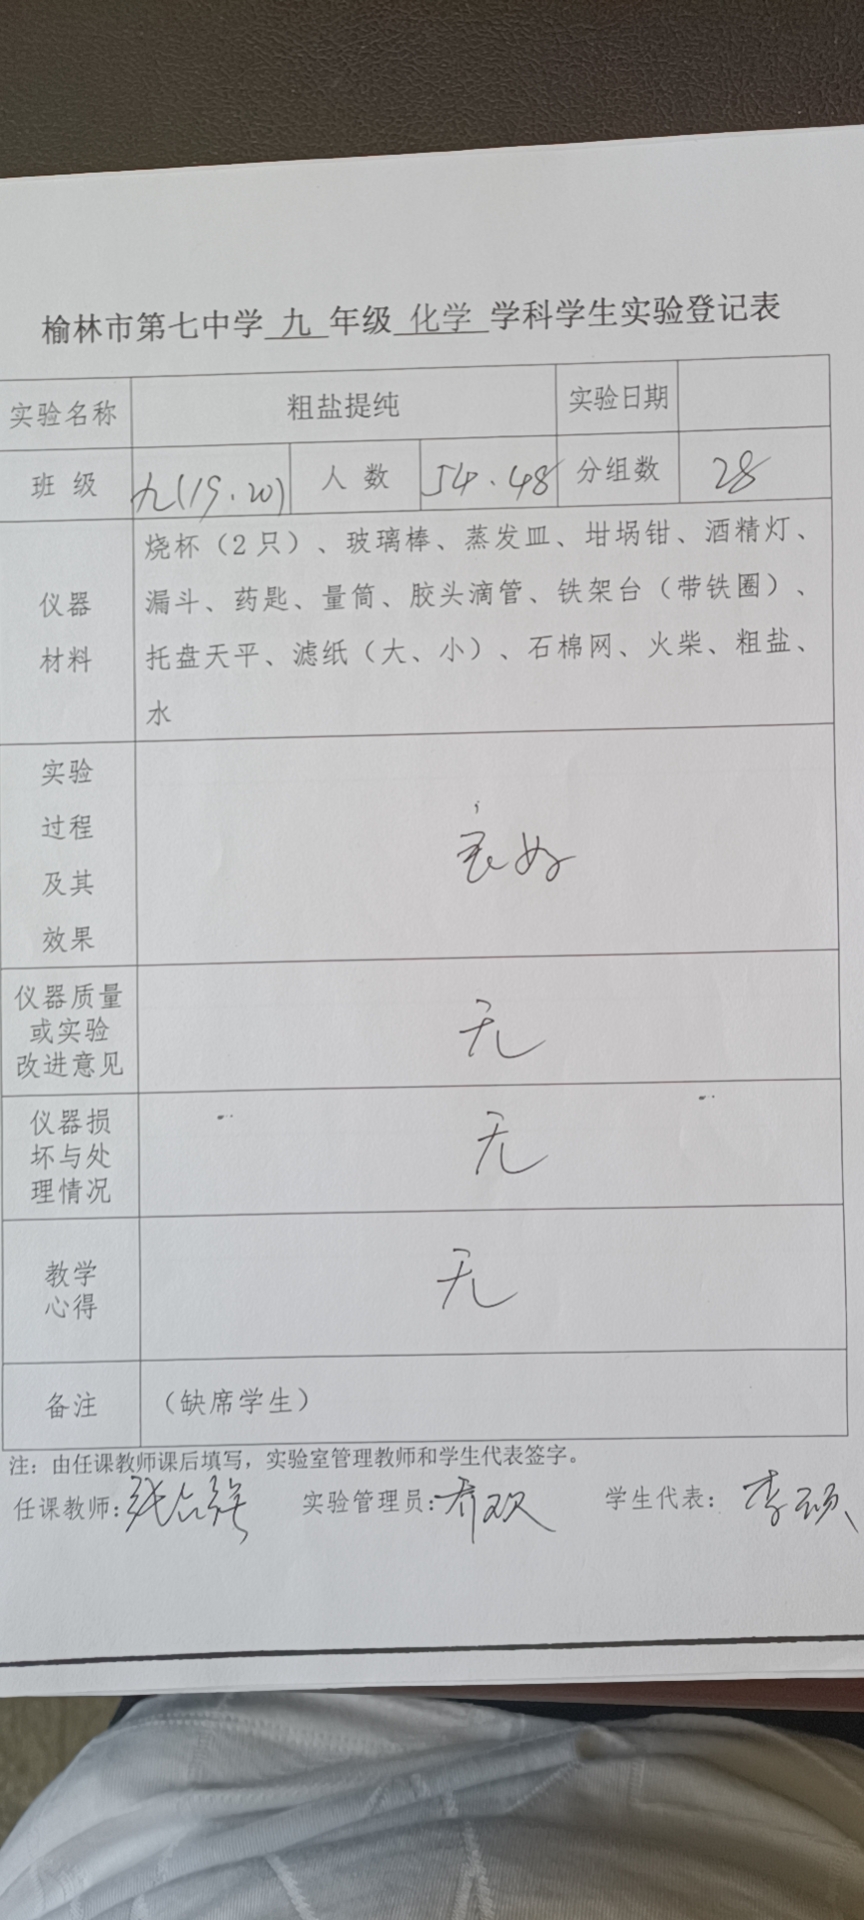 榆林市第七中学 九 年级 化学 学科学生实验登记表
实验名称 粗盐提纯 实验日期
班 级 九(19.20) 人 数 54.48 分组数 28
仪器
材料
烧杯（2只）、玻璃棒、蒸发皿、坩埚钳、酒精灯、
漏斗、药匙、量筒、胶头滴管、铁架台（带铁圈）、
托盘天平、滤纸（大、小）、石棉网、火柴、粗盐、
水
实验
过程
及其
效果
良好
仪器质量
或实验
改进意见
无
仪器损
坏与处
理情况
无
教学
心得
无
备注 （缺席学生）
注：由任课教师课后填写，实验室管理教师和学生代表签字。
任课教师： 实验管理员：乔欢 学生代表：李硕